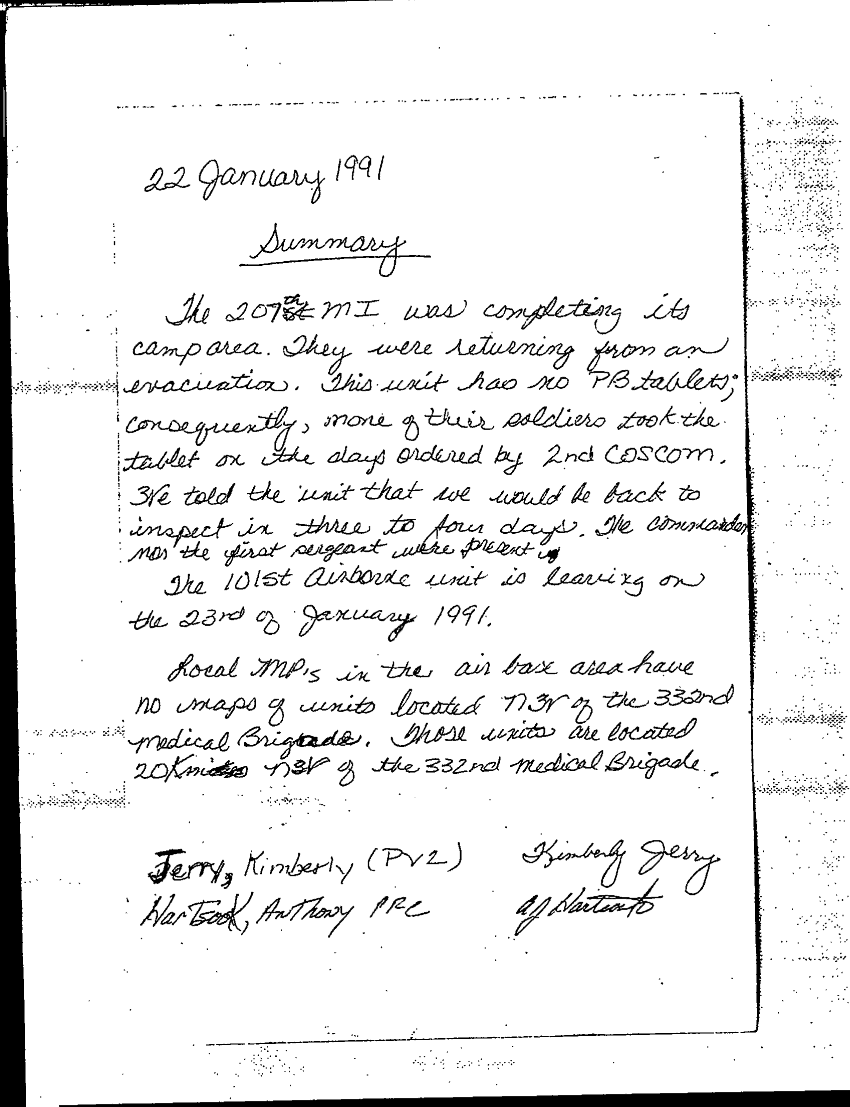 22 January 1991
Summary
The 207th MI was completing its
camp area. They were returning from an
evacuation. This unit has no PB tablets;
consequently, none of their soldiers took the
tablet on the days ordered by 2nd COSCOM.
We told the unit that we would be back to
inspect in three to four days. The commander
nor the first sergeant were present
The 101st Airborne unit is leaving on
the 23rd of January 1991.
Local MP's in the air base area have
no maps of units located NW of the 332nd
Medical Brigade. Those units are located
20Km NW of the 332nd Medical Brigade.
Jerry, Kimberly (PV2) Kimberly Jerry
Hartsook, Anthony PFC AJ Hartsook